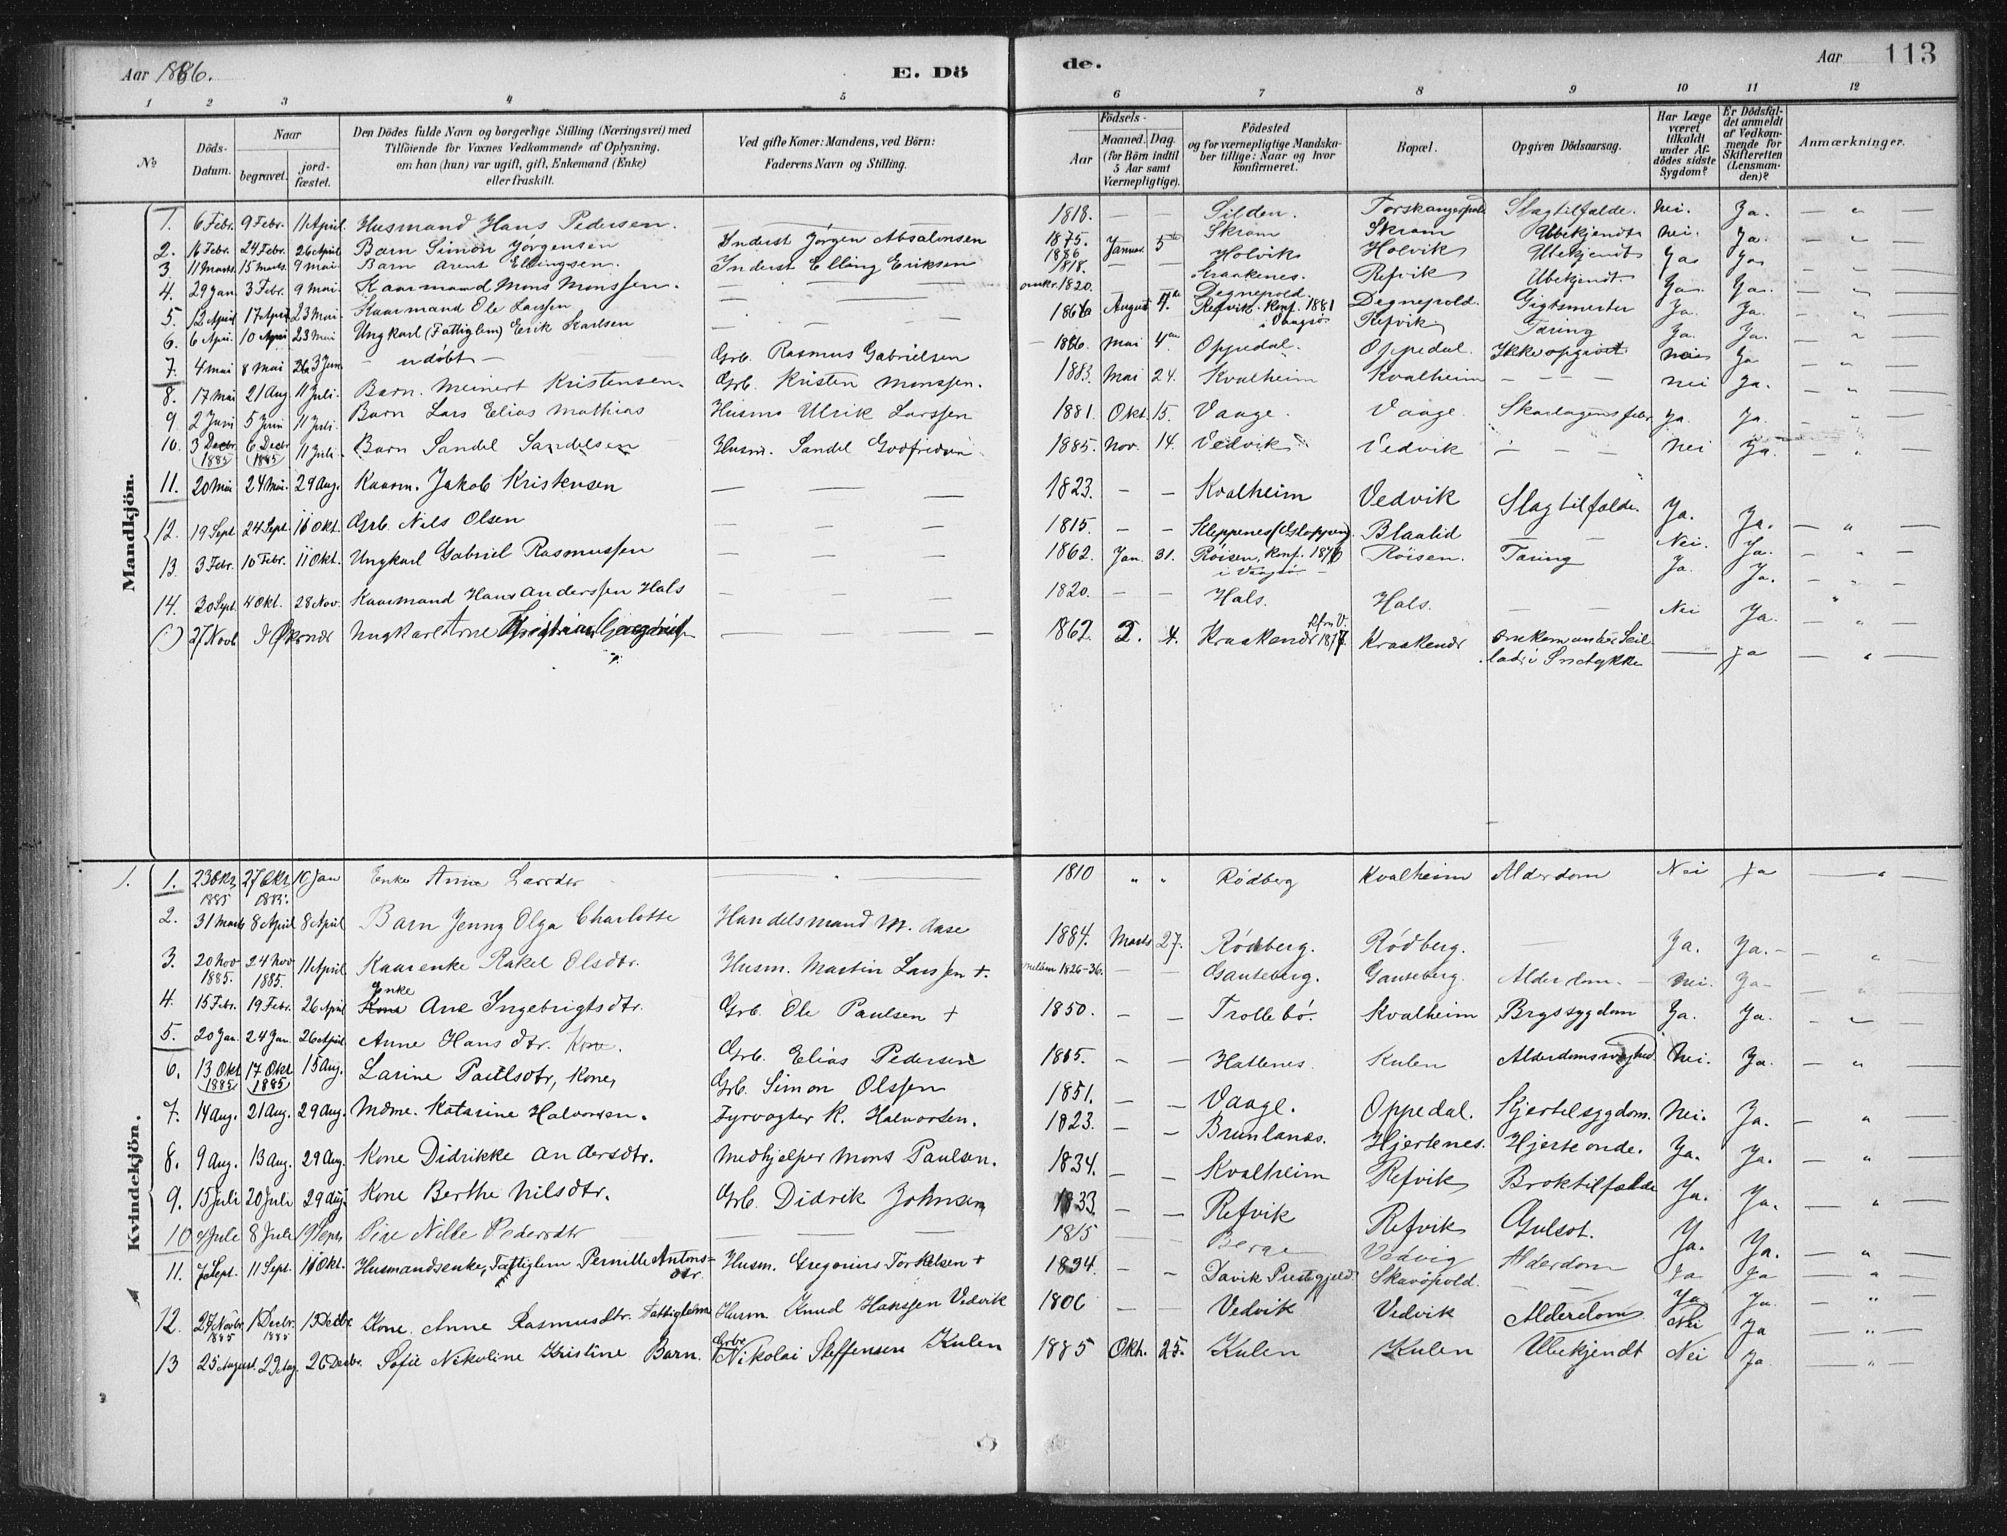 Aar 1886. E. Dö de. Aar 113
1 2 3 4 5 6 7 8 9 10 11 12
No
Döds-Datum.
Naar
begravet.
jord-fæstet.
Den Dödes fulde Navn og borgerlige Stilling (Næringsvei) med
Tilföiende for Voxnes Vedkommende af Oplysning,
om han (hun) var ugift, gift, Enkemand (Enke)
eller fraskilt.
Ved gifte Koner: Mandens, ved Börn:
Faderens Navn og Stilling.
Födsels-
Aar
Maaned. Dag.
(for Börn indtil
5 Aar samt
Værnepligtige).
Födested
og for værnepligtige Mandska-
ber tillige: Naar og hvor
konfirmeret.
Bopæl.
Opgiven Dödsaarsag.
Har Læge
været
tilkaldt
under Af-
dödes sidste
Sygdom?
Er Dödsfal-
det anmeldt
af Vedkom-
mende for
Skifteretten
(Lensman-
den)?
Anmærkninger.
Mandkjön.
1. 6 Febr. 9 Febr. 11 April Husmand Hans Pedersen. 1818. — — Silden. Slagtilfælde. Nei. Ja. — " —
2. 16 Febr. 24 Febr. 26 April Barn Simon Jörgensen Inderst Jörgen Absalonsen 1875. Januar 5te Skram Skram Ubekjendt Nei. Ja. — " —
3. 11 Marts 15 Marts 9 Mai Barn Arent Ellingsen. Inderst Elling Eriksen 1886 Holvik Holvik Ubekjendt Ja Ja — " —
4. 29 Jan. 3 Febr. 9 Mai Kaarmand Mons Monssen. — 1818. — — Kraakenes. Refvik Ubekjendt. Ja Ja. — " —
5. 12 April 17 April 23 Mai Kaarmand Ole Larssen — omkr. 1820. Degnepold Degnepold. Gigtsmerter Ja. Ja. — " —
6. 6 April 10 April 23 Mai Ungkarl (Fattiglem) Erik Karlsen — August Refvik. Konf. 1881 i Vaagsö Refvik Tæring Ja. Ja. — " —
7. 4 Mai 8 Mai 3 Juni — udöbt — Grb. Rasmus Gabrielsen 1886. Mai 4de Oppedal. Oppedal. Ikke opgivet Nei Ja — " —
8. 17 Mai 21 Aug 11 Juli. Barn. Meinert Kristensen. Grb. Kristen Monssen. 1883. Mai 24. Kvalheim Kvalheim — — — Nei Ja. — " —
9. 2 Juni 5 Juni 11 Juli. Barn Lars Elias Mathias Husm. Ulrik Larssen 1881. Okt. 15. Vaage. Vaage. Skarlagensfeber Ja. Ja. — " —
10. 3 Decbr 1885 6 Decbr 1885 11 Juli. Barn Sandel Sandelsen Husm. Sandel Godfridsen 1885. Nov. 14. Vedvik Vedvik — — Nei Ja. — " —
11. 20 Mai 24 Mai. 29 Aug. Kaarm. Jakob Kristensen — — — 1823. — — Kvalheim Vedvik Slagtilfælde. Ja. Ja. — " —
12. 19 Sept 24 Sept. 16 Okt. Grb. Nils Olsen — — — 1815. — — Kleppenes (Gloppen) Blaalid Nei. Ja. — " —
13. 3 Febr. 10 Febr. 11 Okt. Ungkarl Gabriel Rasmussen — — — 1862. Jan. 31. Röisen, Konf. 1876 i Vaagsö — Röisen. Tæring Ja. Ja. — " —
14. 30 Sept. 4 Okt. 28 Nov. Kaarmand Hans Anderssen Hals — — — 1820. — — Hals. Hals. — — Nei Ja. — " —
27 Novb. Ungkarl Arne 1862. 2. 4. Kraakenæs 1877 Kraakenæs Omkom under Seil-
lads i Snetykke — Ja — " —
Kvindekjön.
1. 1. 23 Okt. 1885 27 Okt. 1885. 10 Jan Enke Anna Larsdtr — " — 1810 " " Rödberg Kvalheim Alderdom Nei Ja — " —
2. 31 Marts 8 April 8 April Barn Jenny Olga Charlotte Handelsmand M. Aase 1884. Marts 27. Rödberg. Rödberg. — Ja. Ja. — " —
3. 20 Nov 1885. 24 Nov 1885. 11 April Kaarenke Rakel Olsdtr. Husm. Martin Larssen + mellem 1826-36. — — Gauteberg. Gauteberg. Alderdom. — Nei. Ja — " —
4. 15 Febr. 19 Febr. 26 April Enke Kone Ane Ingebrigtsdtr. Grb. Ole Paulsen + 1850. — — Trollebö. Kvalheim Brystsygdom Ja. Ja. — " —
5. 20 Jan. 24 Jan. 26 April. Anne Hansdtr. Kone. Grb. Elias Pedersen — — Hatlenes. Kulen Nei. Ja. — " —
6. 13 Okt 1885 17 Okt 1885 15 Aug. Larine Paulsdtr, Kone, Grb. Simon Olssen 1851. — — Vaage. Oppedal. Kjertelsygdom. Nei. Ja. — " —
7. 14 Aug. 21 Aug. 29 Aug. Mdme. Katarine Halvorsen. Fyrvogter K. Halvorsen. 1823. — — Brunlanæs. Hjertenes. Hjerteonde. Ja. Ja. — " —
8. 9 Aug. 13 Aug. 29 Aug. Kone Didrikke Andersdtr. Medhjelper Mons Paulsen. 1834. — — Kvalheim Refvik Broktilfælde Ja. Ja. — " —
9. 15 Juli 20 Juli 29 Aug. Kone Berthe Nilsdtr. Grb. Didrik Johnsen 1833. — — Refvik Refvik Gulsot. Ja. Ja. — " —
10 Juli 8 Juli 19 Sept. Pige Nille Pedersdtr — — 1815 — — Berge Vedvig Alderdom Ja Ja — " —
11. 7 Sept. 11 Sept. 16 Okt. Husmandsenke, Fattiglem Pernille Antons-
dtr. Husm. Gregorius Torkelsen + — — Davik Prestegjeld. Skavöpold. — Ja Ja. — " —
12. 27 Novbr 1885 1 Decbr. 1885 Kone, Anne Rasmusdtr. Fattiglem Husm. Knud Hanssen Vedvik 1806 — — Vedvik Vedvik Alderdom Nei Ja — " —
13 25 August. 29 Aug. 26 Decbr. Sofie Nikoline Kristine Barn. Grbr. Nikolai Steffensen Kulen 1885 Okt. 25. Kulen Kulen Ubekjendt Nei Ja — " —